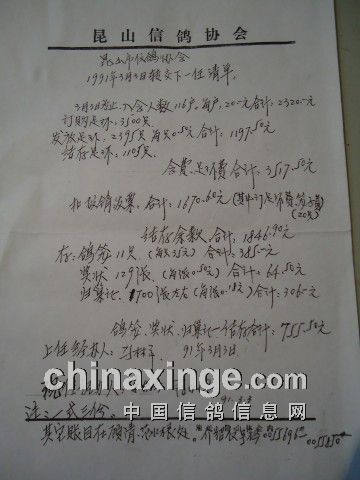 昆山信鸽协会
昆山市信鸽协会
1991年3月3日移交下一任清单.
3月3日为止,入会人数116户,每户,20.00元 合计:2320.00元
订购足环:3500只
发放足环:2395只 每只0.5元 合计:1197.50元
结存足环:1105只
会费.足环费合计:3517.50元
报销发票.合计:1670.60元(其中订足环费
(20只)
结存余款.合计:1846.90元
存:鸽 11只(每只35元)合计:385.00元
奖状 129张(每张0.50元)合计:64.50元
归巢证.1700张左右(每张0.18元)合计306.00元
鸽 奖状.归巢证结存合计:755.50元
上任经办人: 91年3月3日.
经办人:
91.3.3
注:一式三份.
其它账目在
chinaxinge.com
中国信鸽信息网